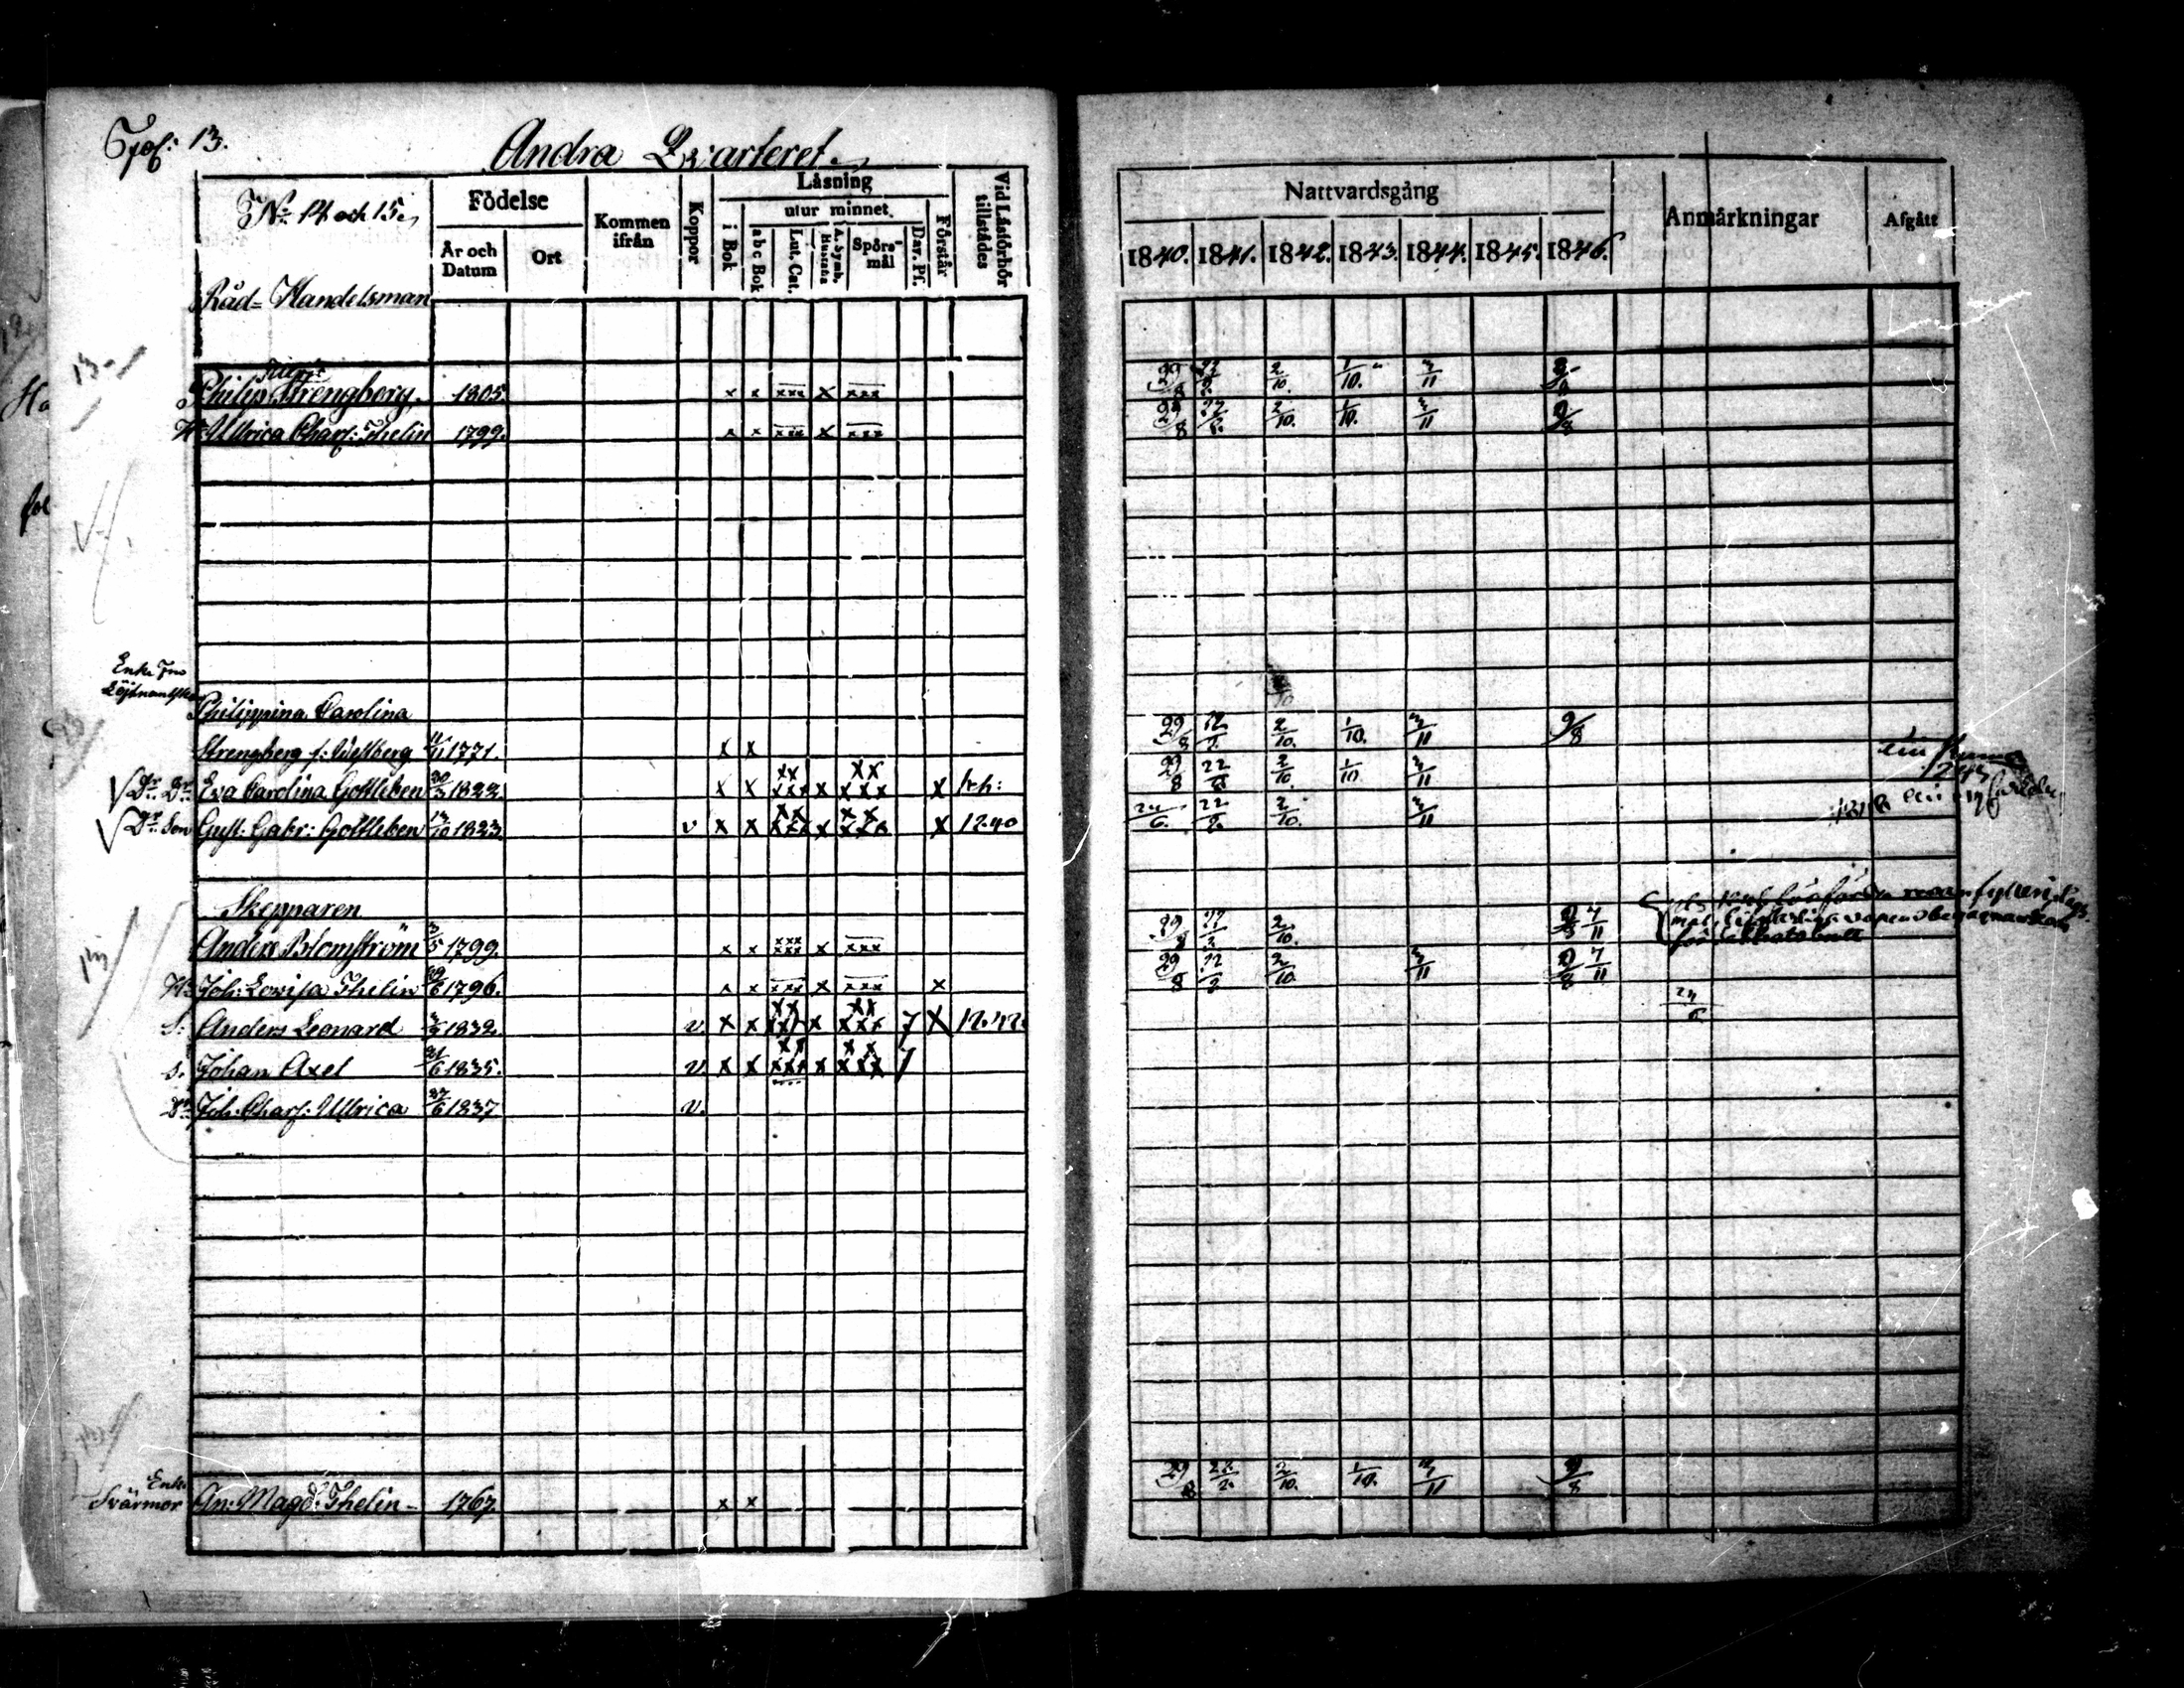 13.
Andra Qvarteret.
No 14 och 15.
Födelse
År och Datum
Ort
Kommen ifrån
Koppor
Läsning
i Bok
utur minnet
abc Bok
Lut. Cat.
A. Symb. Hustafla
Spörsmål
Dav. Ps.
Förstår
Vid Läsförhör tillstädes
Nattvardsgång
1840. 1841. 1842. 1843. 1844. 1845. 1846.
Anmärkningar
Afgått
Råd- Handelsman
13
Philip Strengberg. 1805 x x xxx x xxx 29/8 22/2 2/10. 1/10. 3/11 9/8
H. Ullrica Charl: Thelin 1799. x x xxx x xxx 29/8 22/2. 2/10. 1/10. 3/11 9/8
Enke Fru
Löjtnantskan
Philippina Carolina
Strengberg f: Westberg 1771. x x 29/8 22/2. 2/10. 1/10. 3/11 9/8
Dr: Dr: Eva Carolina Gottleben 30/3 1822. x x xx xxx x xx xxx x 29/8 22/2 2/10. 1/10 3/11
Dr: Son Gust: Gabr: Gottleben 13/10 1823. v x x xx xxx x xx xxx x 12.40 24/6. 22/2. 2/10. 3/11
Skepparen
Anders Blomström 3/5 1799. x x xxx xxx x xxx 29/8 22/2 2/10. 9/8 7/11
H. Joh: Lovisa Thelin 29/6 1796. x x xxx x xxx x 29/8 22/2 2/10. 3/11 9/8 7/11
S. Anders Leonard 3/3 1832. v. x x xx xxx x xx xxx 7 x 12.42. 24/6
S. Johan Axel 21/6 1835. v. x x xx xxx x xx xxx 7
Dr: Joh: Charl: Ullrica 27/6 1837 v.
Enk.
Svärmor An: Magd: Thelin 1767. x x 29/8 22/2. 2/10. 1/10. 3/11 9/8